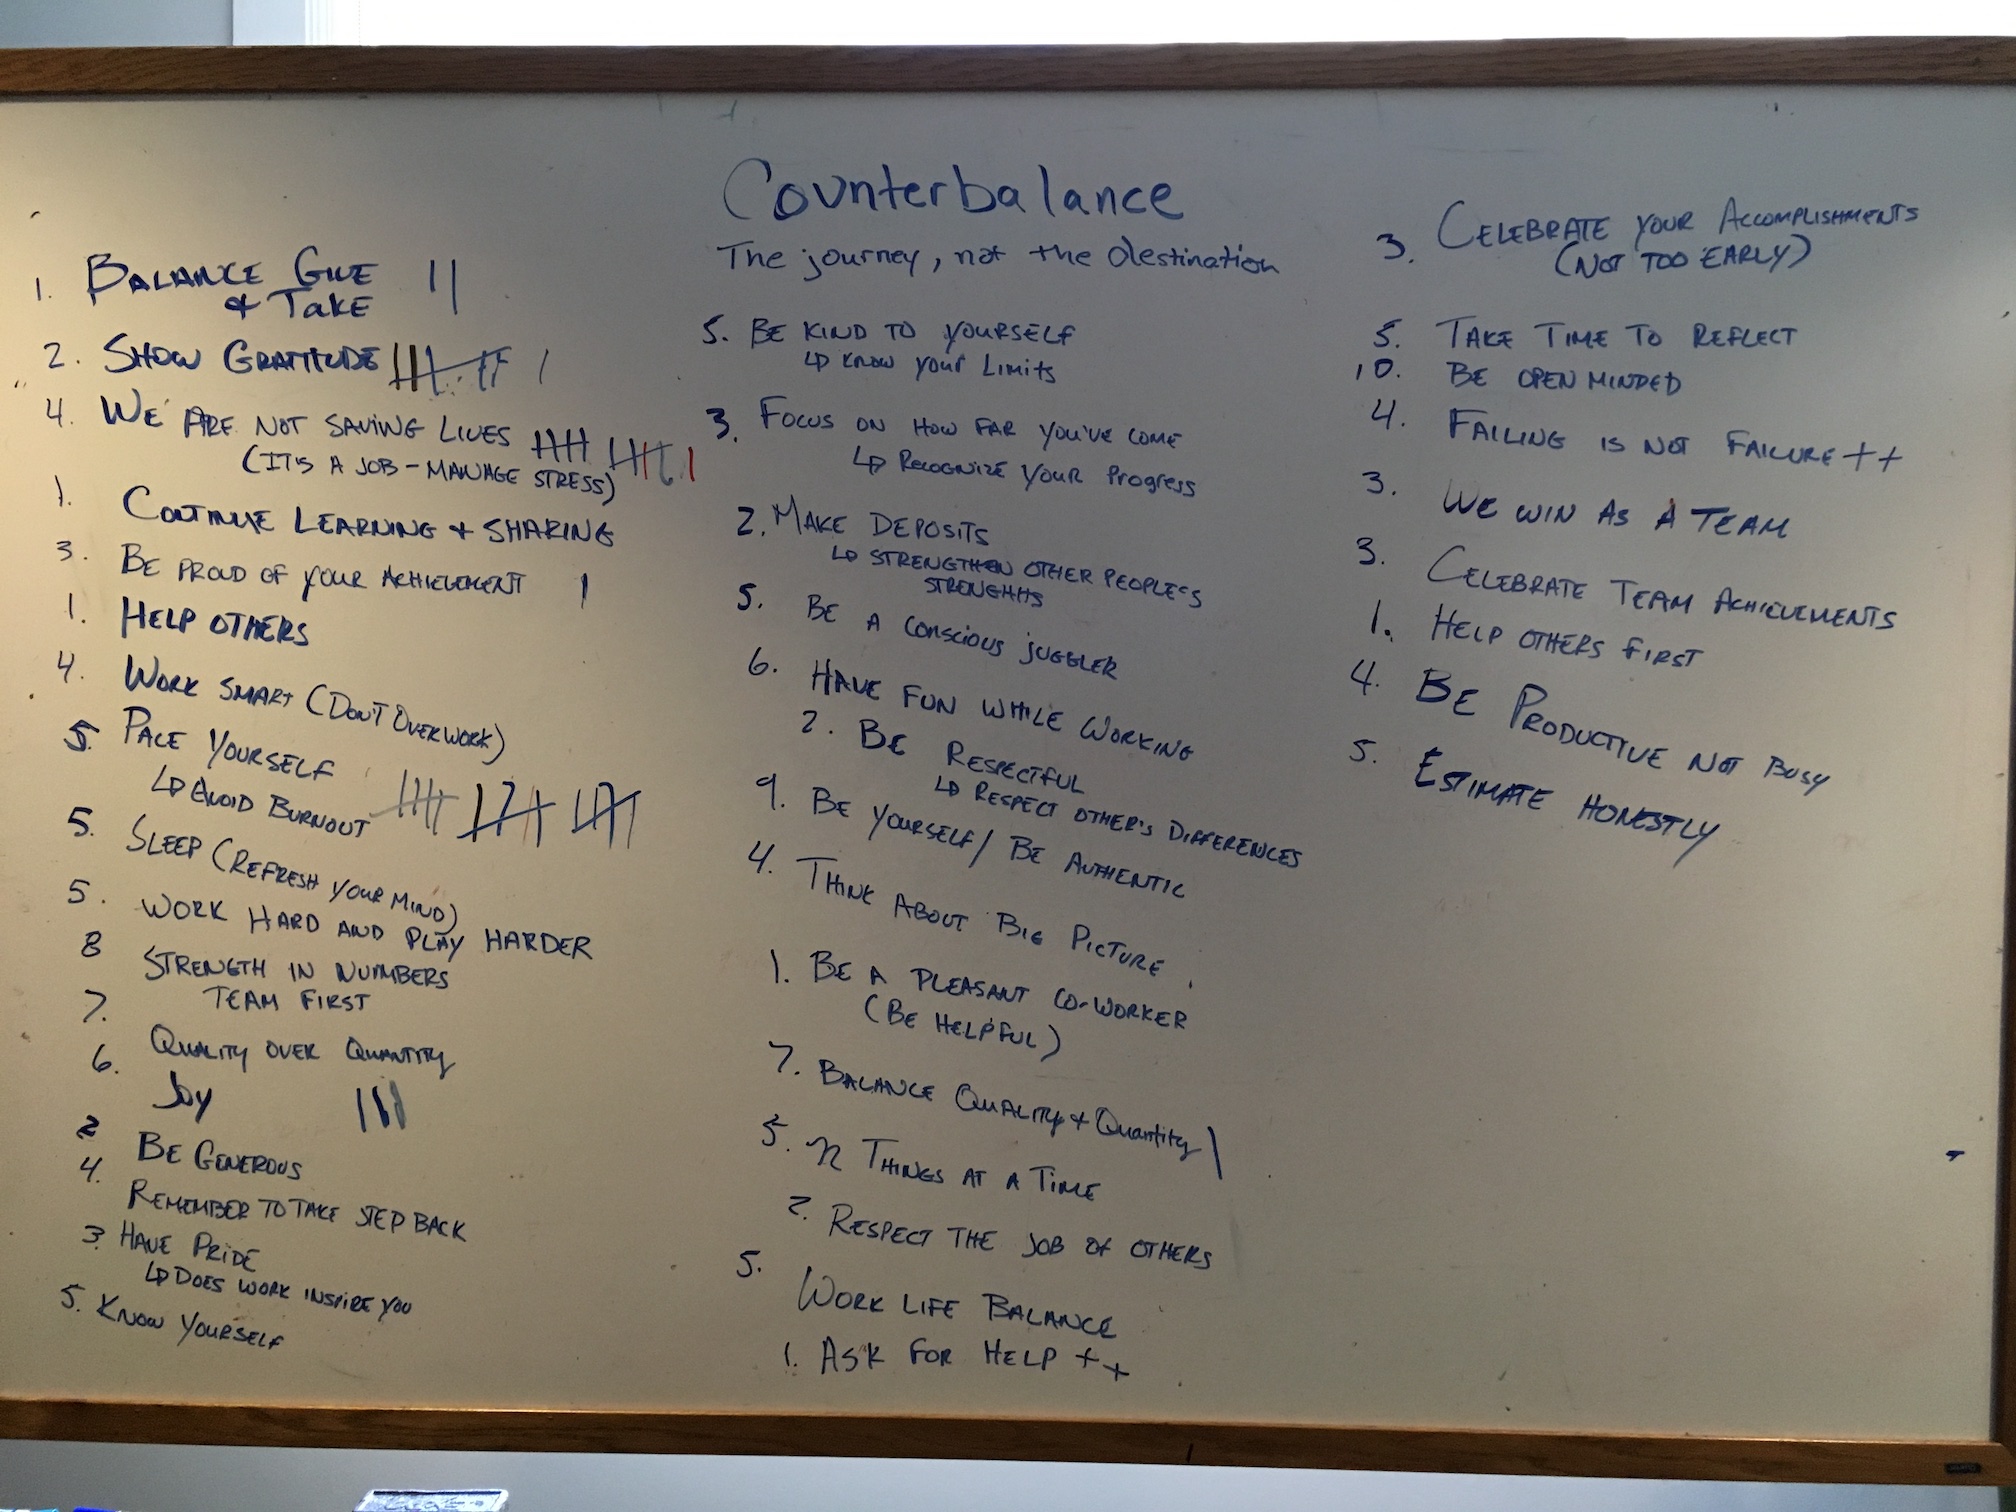 Counterbalance
The journey, not the destination
1. BALANCE GIVE
& TAKE
2. SHOW GRATITUDE
4. WE ARE NOT SAVING LIVES
(IT IS A JOB - MANAGE STRESS)
1. CONTINUE LEARNING & SHARING
3. BE PROUD OF YOUR ACHIEVEMENT
1. HELP OTHERS
4. WORK SMART (DON'T OVERWORK)
5. PACE YOURSELF
↳ AVOID BURNOUT
5. SLEEP (REFRESH YOUR MIND)
5. WORK HARD AND PLAY HARDER
8 STRENGTH IN NUMBERS
TEAM FIRST
7. QUALITY OVER QUANTITY
6. JOY
2 BE GENEROUS
4. REMEMBER TO TAKE STEP BACK
3. HAVE PRIDE
↳ DOES WORK INSPIRE YOU
5. KNOW YOURSELF
5. BE KIND TO YOURSELF
↳ KNOW YOUR LIMITS
3. FOCUS ON HOW FAR YOU'VE COME
↳ RECOGNIZE YOUR PROGRESS
2. MAKE DEPOSITS
↳ STRENGTHEN OTHER PEOPLE'S
STRENGHHS
5. BE A CONSCIOUS JUGGLER
6. HAVE FUN WHILE WORKING
2. BE RESPECTFUL
↳ RESPECT OTHER'S DIFFERENCES
9. BE YOURSELF / BE AUTHENTIC
4. THINK ABOUT BIG PICTURE
1. BE A PLEASANT CO-WORKER
(BE HELPFUL)
7. BALANCE QUALITY & QUANTITY
5. n THINGS AT A TIME
2. RESPECT THE JOB OF OTHERS
5. WORK LIFE BALANCE
1. ASK FOR HELP ++
3. CELEBRATE YOUR ACCOMPLISHMENTS
(NOT TOO EARLY)
5. TAKE TIME TO REFLECT
10. BE OPEN MINDED
4. FAILING IS NOT FAILURE ++
3. WE WIN AS A TEAM
3. CELEBRATE TEAM ACHIEVEMENTS
1. HELP OTHERS FIRST
4. BE PRODUCTIVE NOT BUSY
5. ESTIMATE HONESTLY